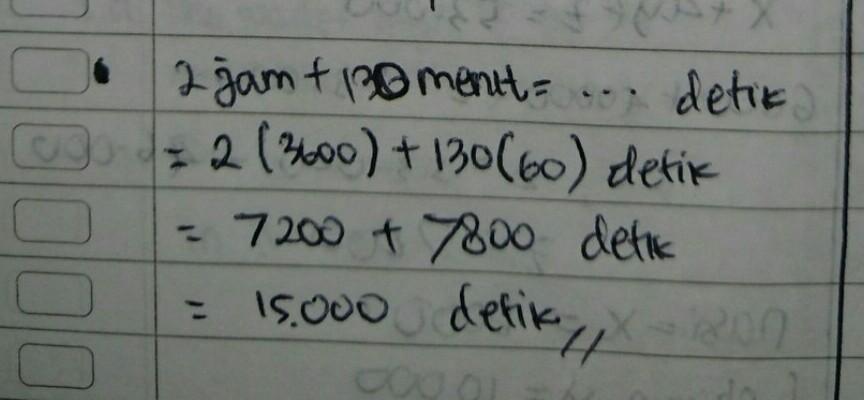 2 jam + 130 menit = ... detik
= 2 (3600) + 130(60) detik
= 7200 + 7800 detik
= 15.000 detik //